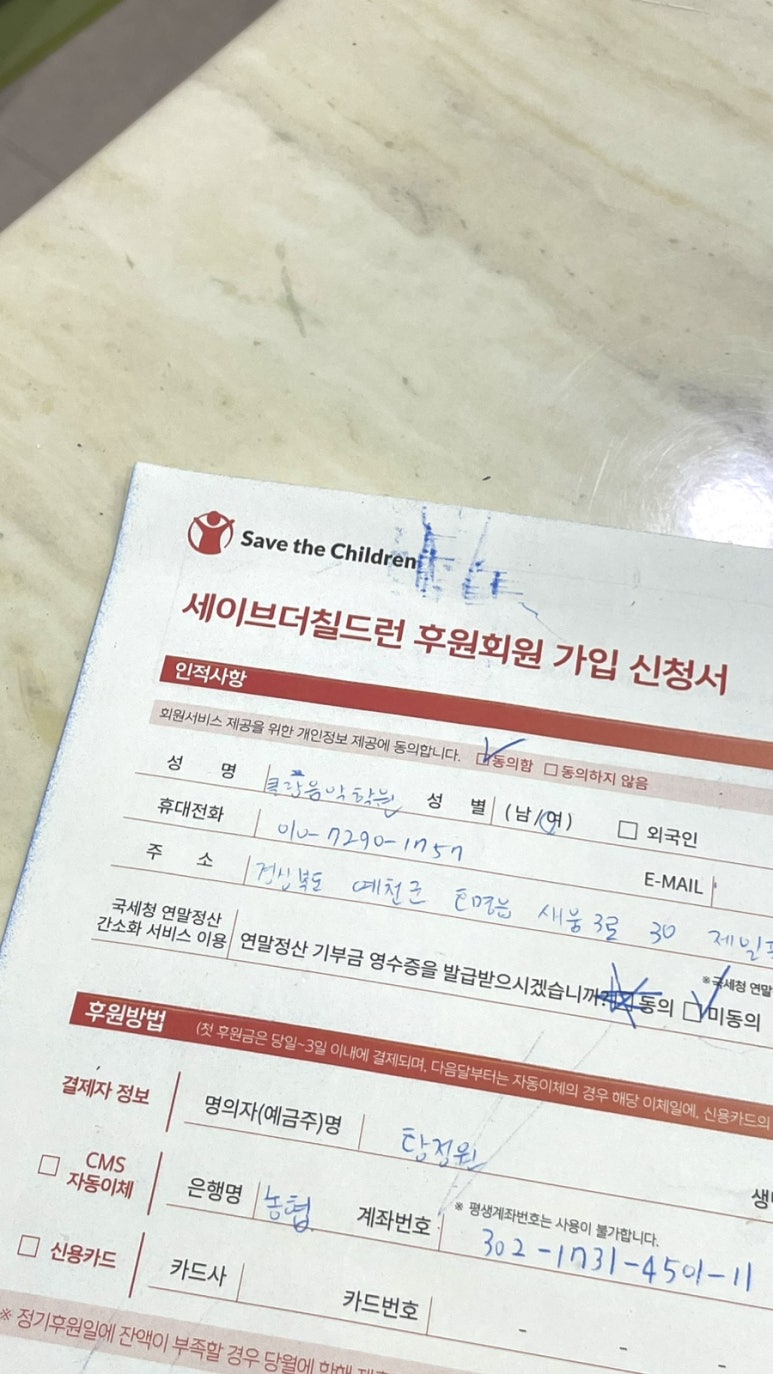 Save the Children
세이브더칠드런 후원회원 가입 신청서
인적사항
회원서비스 제공을 위한 개인정보 제공에 동의합니다. 동의함 동의하지 않음
성 명 음악학원 성 별 (남/여) 외국인
휴대전화 010-7290-1757
E-MAIL
주 소 경상북도 예천군 새움3로 30 제일
국세청 연말정산
간소화 서비스 이용 연말정산 기부금 영수증을 발급받으시겠습니까? 동의 미동의
※국세청 연말
후원방법 (첫 후원금은 당일~3일 이내에 결제되며, 다음달부터는 자동이체의 경우 해당 이체일에, 신용카드의
결제자 정보 명의자(예금주)명 탐정원
생
CMS
자동이체 은행명 농협 계좌번호 ※ 평생계좌번호는 사용이 불가합니다.
302-1731-4501-11
신용카드 카드사 카드번호 - - -
※ 정기후원일에 잔액이 부족할 경우 당월에 한해